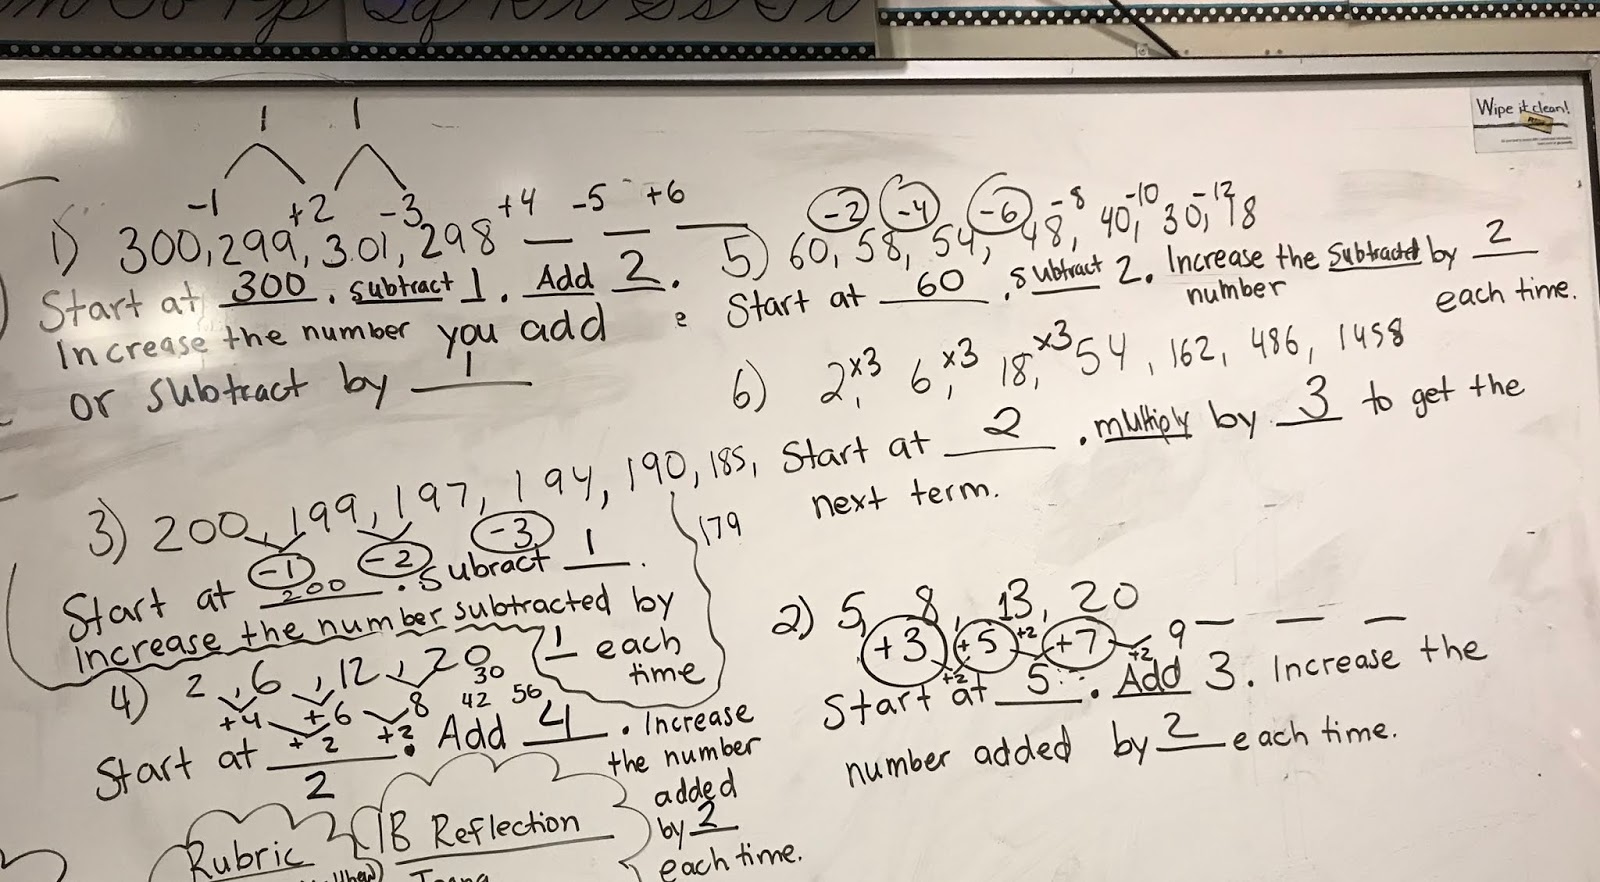 Wipe it clean!
1 1
-1 +2 -3 +4 -5 +6
1) 300, 299, 301, 298 __ __ __
Start at 300. subtract 1. Add 2.
Increase the number you add
or subtract by 1
-2 -4 -6 -8 -10 -12
5) 60, 58, 54, 48, 40, 30, 18
Start at 60. subtract 2. Increase the subtracted by 2
number each time.
x3 x3 x3
6) 2, 6, 18, 54, 162, 486, 1458
Start at 2. multiply by 3 to get the
next term.
3) 200, 199, 197, 194, 190, 185,
179
-1 -2 -3
Start at 200. Subract 1.
Increase the number subtracted by
1 each
time
4) 2, 6, 12, 20
30
42 56
+4 +6 8
+2 +2
Start at 2. Add 4. Increase
the number
added
by 2
each time.
2) 5, 8, 13, 20 __ __ __
+3 +5 +7 9
+2 +2 +2
Start at 5. Add 3. Increase the
number added by 2 each time.
Rubric
IB Reflection